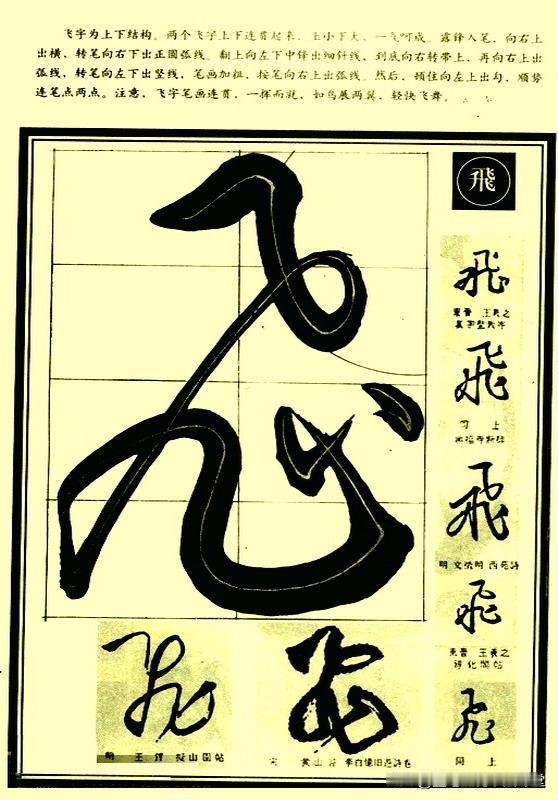 飞字为上下结构。两个飞字上下连贯起来，上小下大，一气呵成。露锋入笔，向右上
出横，转笔向右下出正圆弧线。翻上向左下中锋出细针线，到底向右转带上，再向右上出
弧线，转笔向左下出竖线，笔画加粗，按笔向右上出弧线。然后，顿住向左上出勾，顺势
连笔点两点。注意，飞字笔画连贯，一挥而就，如鸟展两翼，轻快飞舞。
飛
飛
東晋 王羲之
飛
同 上
飛
明 文徵明 西苑詩
飛
東晋 王羲之
淳化閣帖
飛
同 上
飛
明 王鐸 擬山園帖
飛
宋 黄山谷 李白憶旧遊詩卷